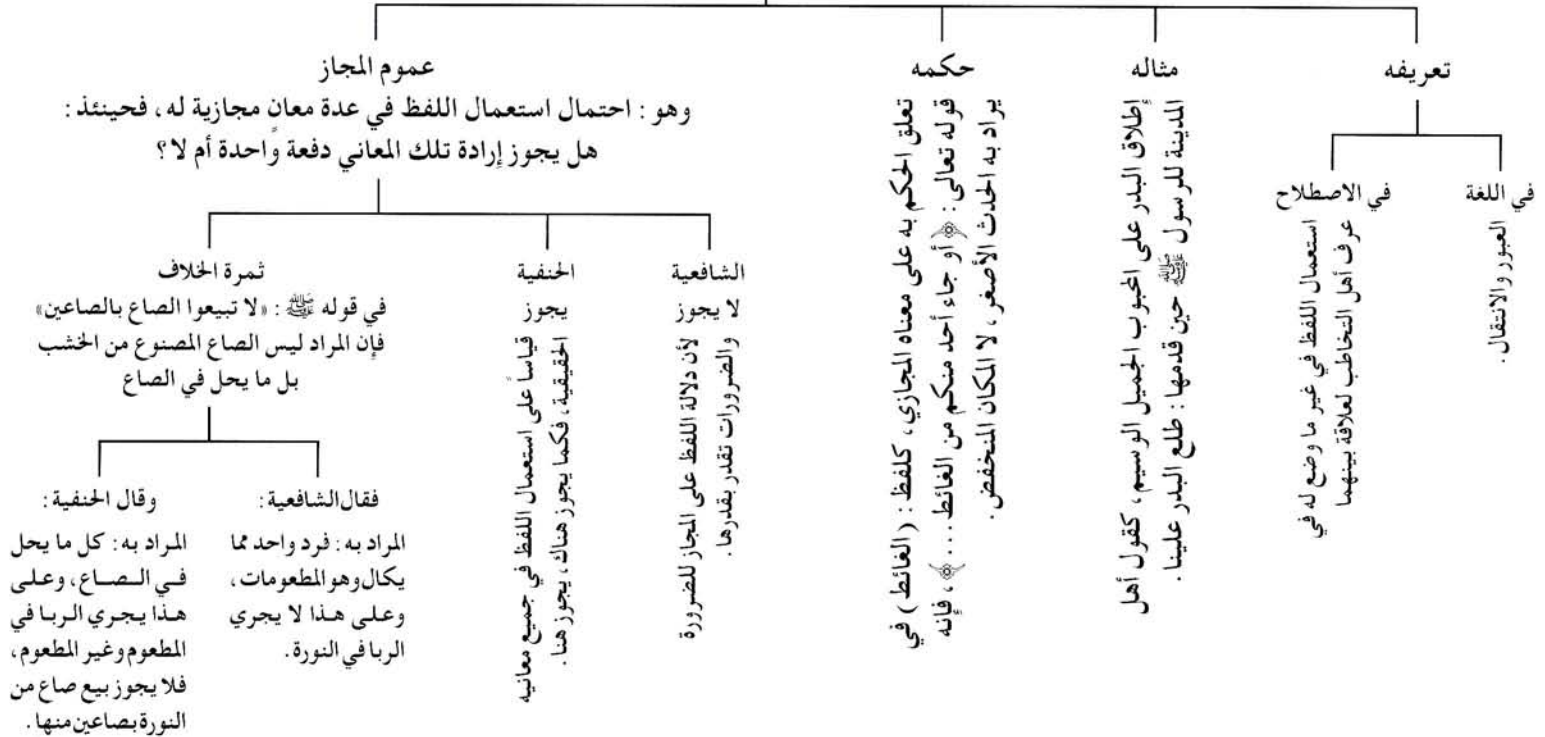 تعريفه
في اللغة
العبور والانتقال .
في الاصطلاح
استعمال اللفظ في غير ما وضع له في
عرف أهل التخاطب لعلاقة بينهما
مثاله
إطلاق البدر على المحبوب الجميل الوسيم ، كقول أهل
المدينة للرسول ﷺ حين قدمها : طلع البدر علينا .
حكمه
تعلق الحكم به على معناه المجازي ، كلفظ : ( الغائط ) في
قوله تعالى : ﴿ أو جاء أحد منكم من الغائط . . . ﴾ ، فإنه
يراد به الحدث الأصغر ، لا المكان المنخفض .
عموم المجاز
وهو : احتمال استعمال اللفظ في عدة معان مجازية له ، فحينئذ :
هل يجوز إرادة تلك المعاني دفعة واحدة أم لا ؟
الشافعية
لا يجوز
لأن دلالة اللفظ على المجاز للضرورة
والضرورات تقدر بقدرها .
الحنفية
يجوز
قياساً على استعمال اللفظ في جميع معانيه
الحقيقية ، فكما يجوز هناك ، يجوز هنا .
ثمرة الخلاف
في قوله ﷺ : «لا تبيعوا الصاع بالصاعين»
فإن المراد ليس الصاع المصنوع من الخشب
بل ما يحل في الصاع
فقال الشافعية :
المراد به : فرد واحد مما
يكال وهو المطعومات ،
وعلى هذا لا يجري
الربا في النورة .
وقال الحنفية :
المراد به : كل ما يحل
في الصاع ، وعلى
هذا يجري الربا في
المطعوم وغير المطعوم ،
فلا يجوز بيع صاع من
النورة بصاعين منها .